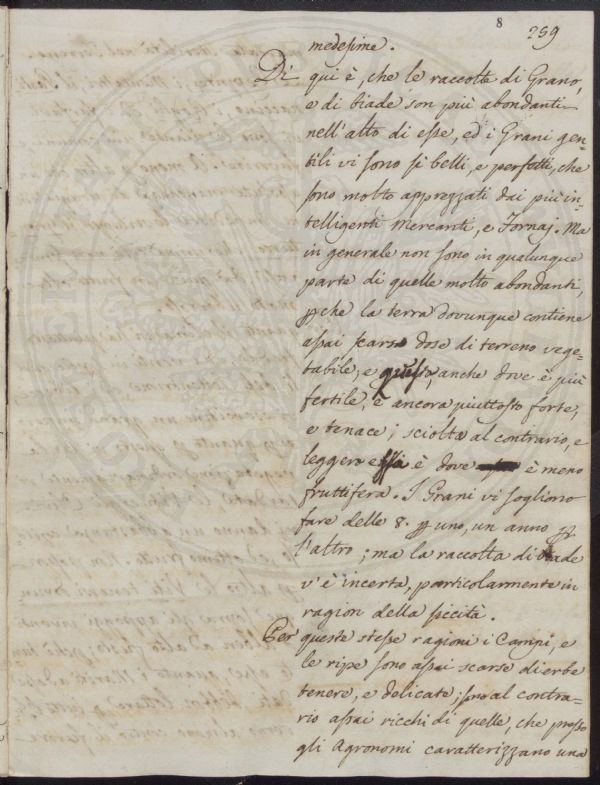 8
259
medesime.
Di qui è, che le raccolte di Grano,
e di biade son più abondanti
nell'alto di esse, ed i Grani gen-
tili vi sono sì belli, e perfetti, che
sono molto apprezzati dai più in-
telligenti Mercanti, e Fornaj. Ma
in generale non sono in qualunque
parte di quelle molto abondanti,
ꝑche la terra dovunque contiene
assai scarsa dose di terreno vege-
tabile, e questo, anche dove è più
fertile, è ancora piuttosto forte,
e tenace; sciolta al contrario, e
leggera essa è dove è meno
fruttifera. I Grani vi sogliono
fare delle 8. ꝑ uno, un anno ꝑ
l'altro; ma la raccolta di biade
v'è incerta, particolarmente in
ragion della siccità.
Per queste stesse ragioni i Campi, e
le ripe sono assai scarse di erbe
tenere, e delicate; sono al contra-
rio assai ricchi di quelle, che presso
gli Agronomi caratterizzano una